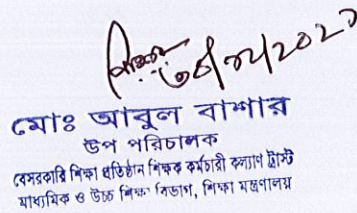 মোঃ আবুল বাশার
উপ পরিচালক
বেসরকারি শিক্ষা প্রতিষ্ঠান শিক্ষক কর্মচারী কল্যাণ ট্রাস্ট
মাধ্যমিক ও উচ্চ শিক্ষা বিভাগ, শিক্ষা মন্ত্রণালয়